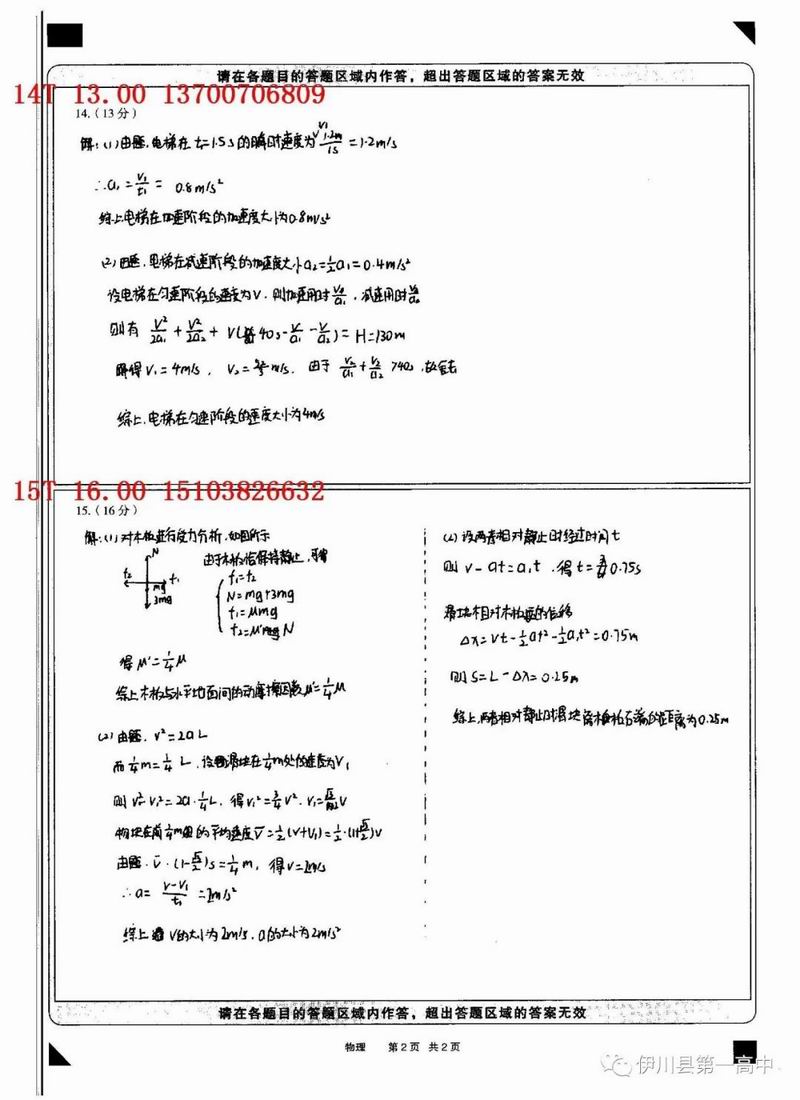 请在各题目的答题区域内作答，超出答题区域的答案无效
14T 13.00 13700706809
14.（13分）
解：(1)由题，电梯在t=1.5s的瞬时速度为V₁ 1.2m/1s =1.2m/s
∴a₁=V₁/t₁= 0.8m/s²
综上电梯在加速阶段的加速度大小为0.8m/s²
(2)由题，电梯在减速阶段的加速度大小a₂=½a₁=0.4m/s²
设电梯在匀速阶段的速度为V，则加速用时V/a₁，减速用时V/a₂
则有 V²/2a₁ + V²/2a₂ + V(40s-V/a₁-V/a₂)=H=130m
解得V₁=4m/s， V₂= m/s，由于 V₂/a₁+V₂/a₂ >40s，故舍去
综上，电梯在匀速阶段的速度大小为4m/s
15T 16.00 15103826632
15.（16分）
解：(1)对木板进行受力分析，如图所示
由于木板恰保持静止，可得
N
f₂ f₁
mg
3mg
f₁=f₂
N=mg+3mg
f₁=μmg
f₂=μ'N
得μ'=¼μ
综上木板与水平地面间的动摩擦因数μ'=¼μ
(2)由题，v²=2aL
而¼m=¼L，设滑块在¼m处的速度为V₁
则v²-v₁²=2a·¼L，得v₁²=¾v²，v₁=√3/2 V
物块在前¼m的平均速度v̄=½(v+v₁)=½·(1+√3/2)v
由题，v̄·(1-√3/2)s=¼m，得v=2m/s
∴a= (v-v₁)/t₁ =2m/s²
综上 v的大小为2m/s，a的大小为2m/s²
(2)设两者相对静止时经过时间t
则 v-at=a₁t，得t=0.75s
滑块相对木板的位移
Δx=vt-½at²-½a₁t²=0.75m
则S=L-Δx=0.25m
综上，两者相对静止时滑块离木板右端的距离为0.25m
请在各题目的答题区域内作答，超出答题区域的答案无效
物理 第2页 共2页
伊川县第一高中